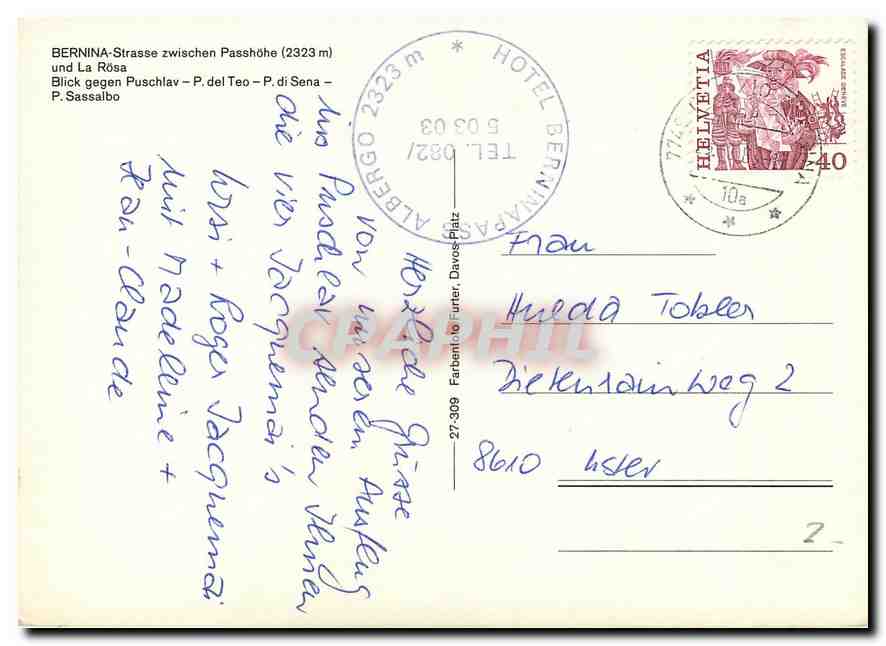 BERNINA-Strasse zwischen Passhöhe (2323 m)
und La Rösa
Blick gegen Puschlav – P. del Teo – P. di Sena –
P. Sassalbo
* HOTEL BERNINAPASS ALBERGO 2323 m
TEL. 082/
5 03 03
HELVETIA
ESCALADE GENÈVE
40
10a
Herzliche Grüsse
von unserem Ausflug
ins Puschlav senden Ihnen
die vier Jacquemai's
Ursi + Roger Jacquemai
mit Madelleine +
Jean-Claude
27-309 Farbenfoto Furter, Davos-Platz
CPAPHIL
Frau
Hulda Tobler
Dietenrainweg 2
8610 Uster
2.-